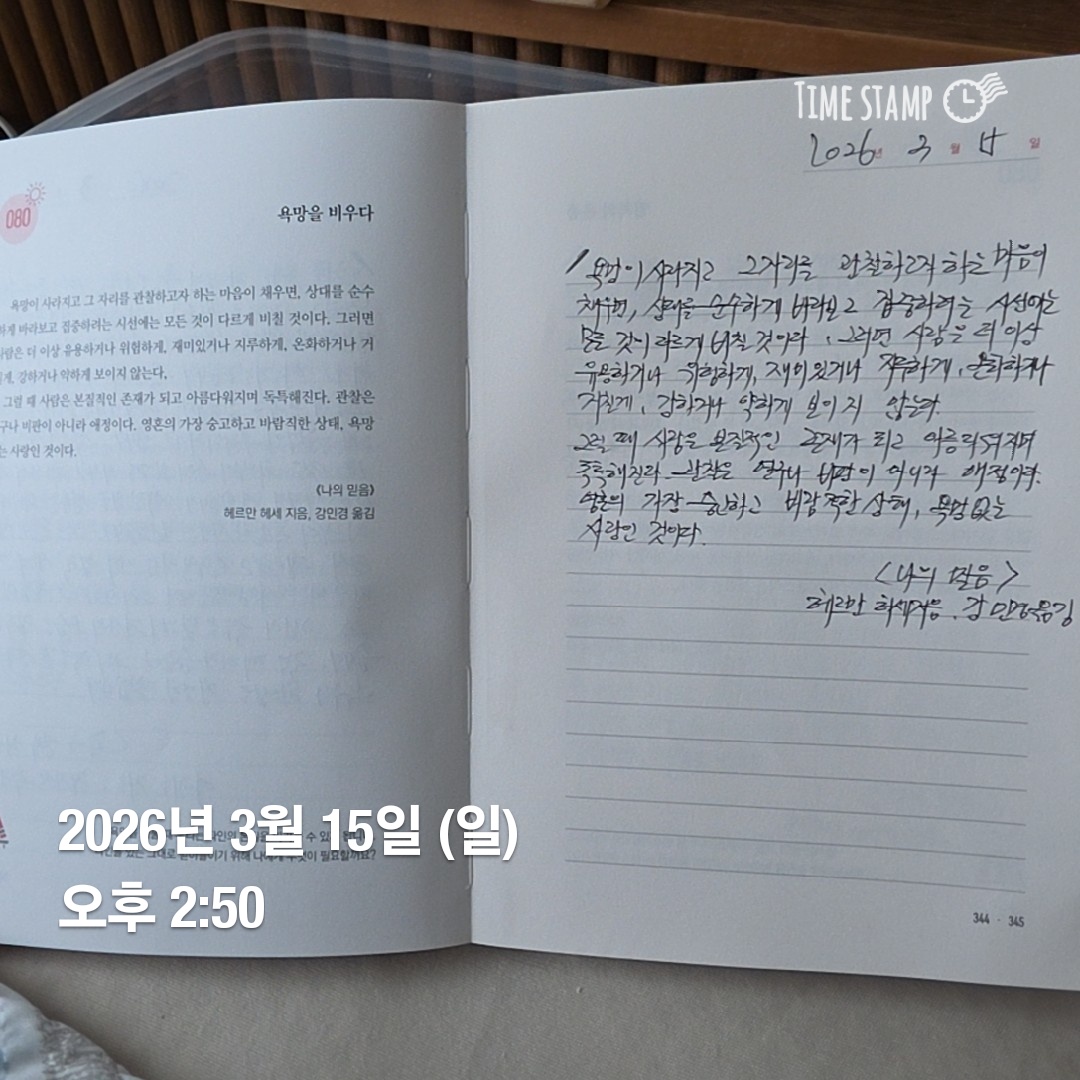 TIME STAMP
2026년 3월 15일
080
욕망을 비우다
욕망이 사라지고 그 자리를 관찰하고자 하는 마음이 채우면, 상대를 순수
하게 바라보고 집중하려는 시선에는 모든 것이 다르게 비칠 것이다. 그러면
사람은 더 이상 유용하거나 위험하게, 재미있거나 지루하게, 온화하거나 거
칠게, 강하거나 약하게 보이지 않는다.
그럴 때 사람은 본질적인 존재가 되고 아름다워지며 독특해진다. 관찰은
구나 비판이 아니라 애정이다. 영혼의 가장 숭고하고 바람직한 상태, 욕망
는 사랑인 것이다.
《나의 믿음》
헤르만 헤세 지음, 강민경 옮김
욕망이 사라지고 그 자리를 관찰하고자 하는 마음이
채우면, 상대를 순수하게 바라보고 집중하려는 시선에는
모든 것이 다르게 비칠 것이다. 그러면 사람은 더 이상
유용하거나 위험하게, 재미있거나 지루하게, 온화하거나
거칠게, 강하거나 약하게 보이지 않는다.
그럴 때 사람은 본질적인 존재가 되고 아름다워지며
독특해진다. 관찰은 연구나 비판이 아니라 애정이다.
영혼의 가장 숭고하고 바람직한 상태, 욕망 없는
사랑인 것이다.
<나의 믿음>
헤르만 헤세 지음, 강민경 옮김
2026년 3월 15일 (일)
수 있
그대로 받아들이기 위해 나에게 무엇이 필요할까요?
오후 2:50
344 · 345